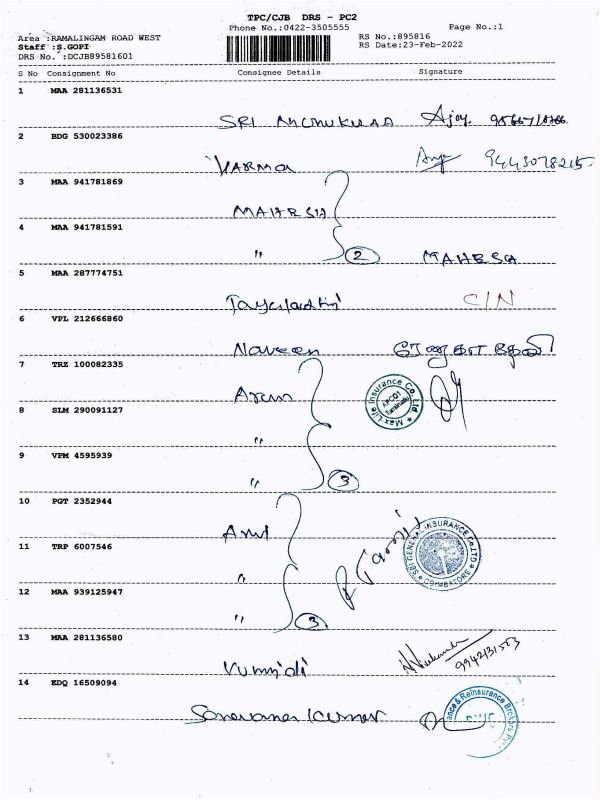 TPC/CJB DRS - PC2
Phone No.:0422-3505555 Page No.:1
Area :RAMALINGAM ROAD WEST RS No.:895816
Staff :S.GOPI RS Date:23-Feb-2022
DRS No. :DCJB89581601
S No Consignment No Consignee Details Signature
1 MAA 281136531
SRI Ajay.
2 BDG 530023386
VARMA
3 MAA 941781869
MAHESH
4 MAA 941781591
" 2 MAHESH
5 MAA 287774751
C/N
6 VPL 212666860
Naveen ரேணுகா தேவி
7 TRZ 100082335
Arun Max Life Insurance Co. Ltd
8 SLM 290091127
"
9 VPM 4595939
" 3
10 PGT 2352944
Anil
11 TRP 6007546
" SBI GENERAL INSURANCE Co.LTD COIMBATORE
12 MAA 939125947
" 3
13 MAA 281136580
Vummidi
14 EDQ 16509094
Saravana Kumar & Reinsurance Brokers